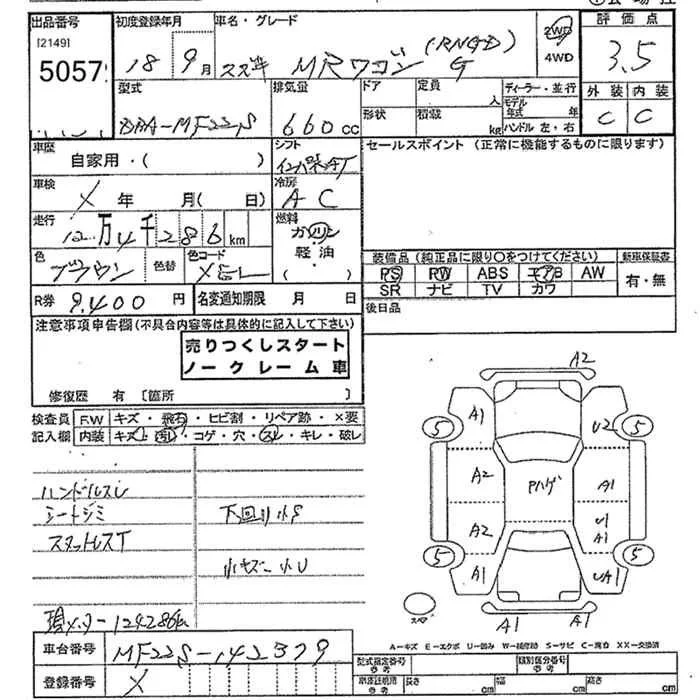 出品番号 初度登録年月 車名・グレード 評価点
[2149] 18年 9月 スズキ MRワゴン (RNGD) G 2WD 4WD 3.5
5057
型式 排気量 ドア 定員 人 ディーラー・並行 外装 内装
DBA-MF22S 660cc 形状 積載 kg モデル年式 年 ハンドル 左・右 C C
車歴 自家用・( ) シフト セールスポイント (正常に機能するものに限ります)
車検 X 年 月(日) 冷房 AC
走行 12万4千286km 燃料 ガソリン 軽油 ( )
色 ブラウン 色替 色コード 装備品 (純正品に限り○をつけてください) 新車保証書
PS PW ABS エアB AW 有・無
SR ナビ TV カワ
R券 9,400円 名変通知期限 月 日 後日品
注意事項申告欄(不具合内容等は具体的に記入して下さい)
売りつくしスタート
ノークレーム車
修復歴 有 [箇所 ]
検査員 F.W キズ・飛石・ヒビ割・リペア跡・×要
記入欄 内装 キズ・汚レ・コゲ・穴・スレ・キレ・破レ
ハンドルスレ
シートシミ 下回り小S
スタットレスT
小キズ 小U
現メーター124286km
A2
A1 U2
5 5
A2 Pハゲ A1
A2 U1 A1
5 5
A1 UA1
スペア A1 A1
A-キズ E-エクボ U-凹み W-補修跡 S-サビ C-腐食 XX-交換済
車台番号 MF22S-142379
登録番号 X
型式指定番号 参考 類別区分番号 参考
長さ cm 幅 cm 高さ cm